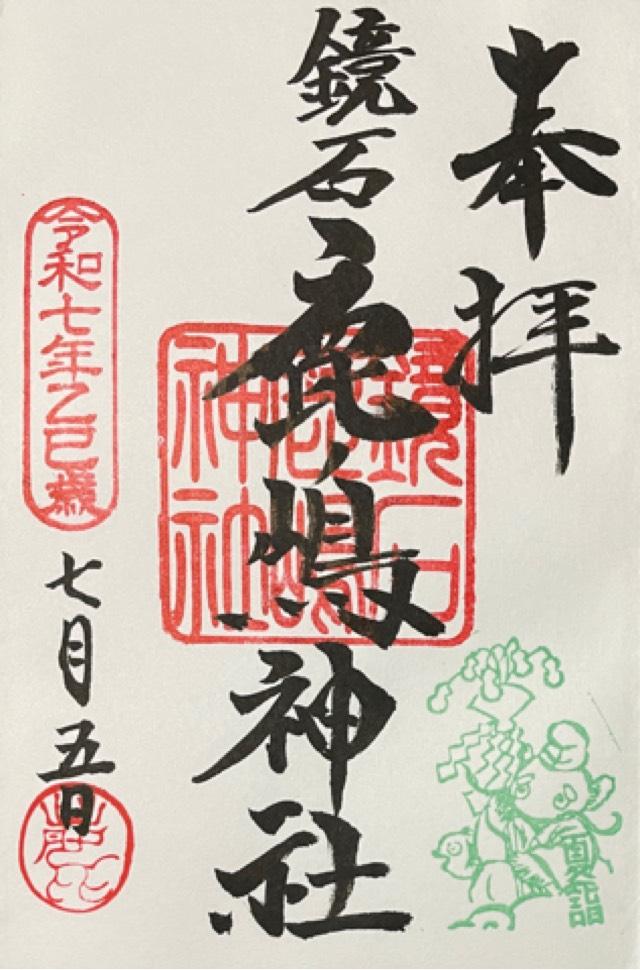 奉拝
鏡石鹿嶋神社
鏡石
鹿嶋
神社
令和七年乙巳歳
七月五日
夏詣